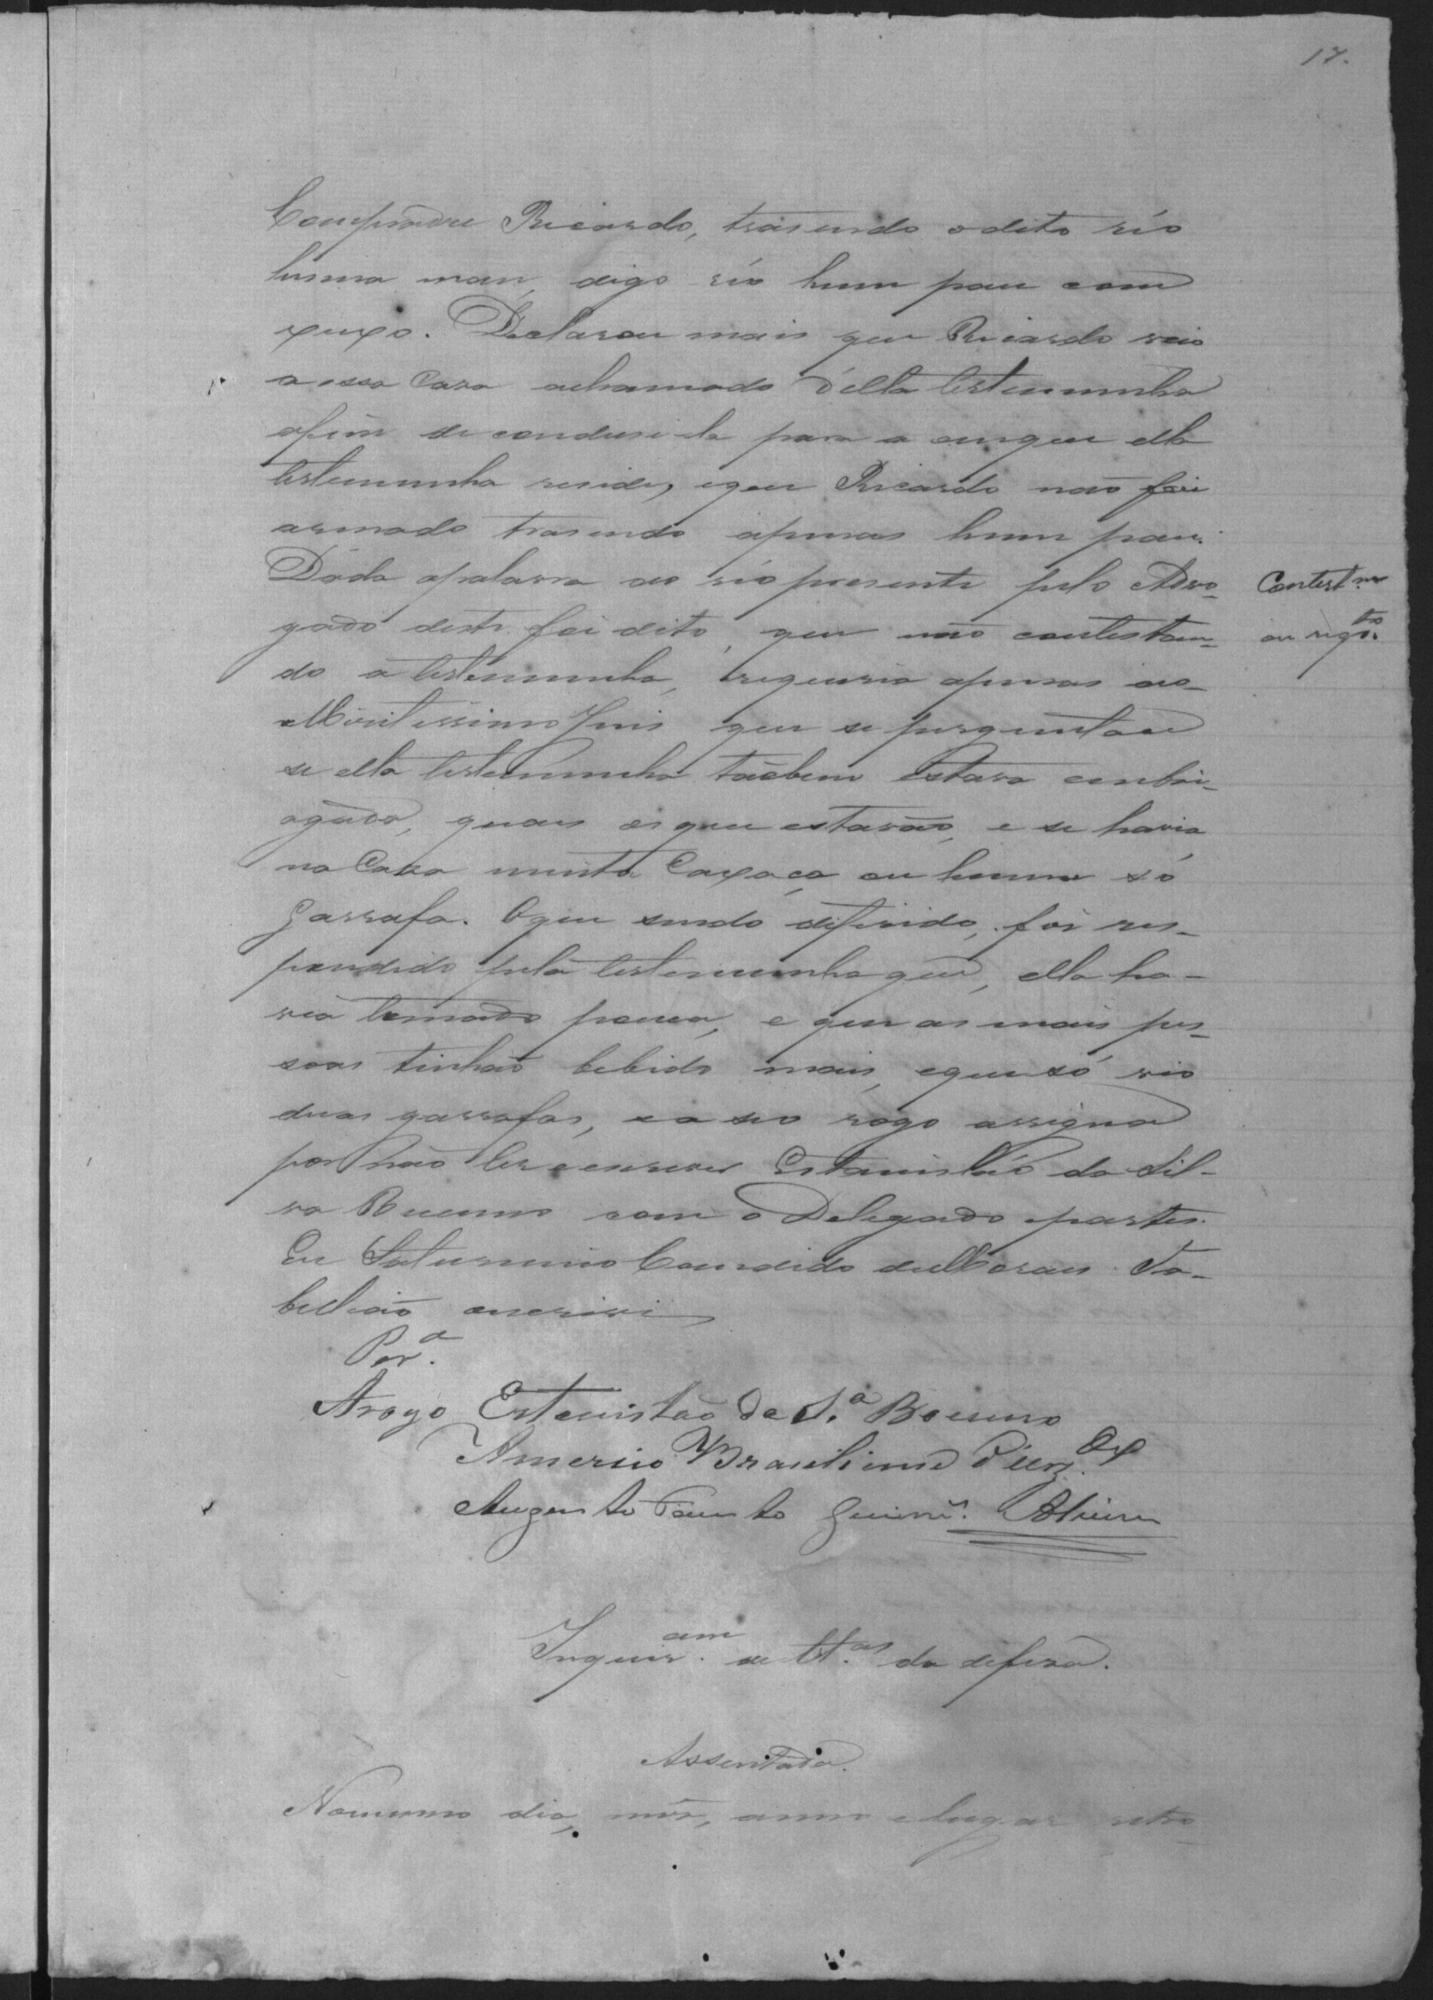 17.
Compadre Ricardo, trasendo o dito réo
huma man, digo réo hum pau com
xuxo. Declarou mais que Ricardo veio
a essa Casa achamado d'ella testemunha
afim de condusi-la para a em que ella
testemunha reside, eque Ricardo não foi
armado trasendo apenas hum pau.
Dada apalavra ao réo presente pelo Advo-
gado deste foi dito, que não contestan-
do a testemunha, requeria apenas ao
Meritissimo Juis que se perguntace
se ella testemunha tãobem estava embri-
agada, quais os que estavão, e se havia
na Casa muita Caxaça ou huma só
garrafa. Oque sendo diferido, foi res-
pondido pela testemunha que, ella ha-
via tomado pouca, e que as mais pes-
soas tinhão bebido mais, eque só vio
duas garrafas, e a seo rogo assigna
por não ler e escrever Estanisláo da Sil-
va Bueno com o Delegado epartes.
Eu Saturnino Candido de Moraes Ta-
bellião escrivi
Contest.am
ou reqto.
Per.a
Arogo Estanislão da S.a Boueno
Americo Brasiliense
Augusto Fausto Guimes. Alvim
Inquir.am de tt.as da defesa.
Assentada.
No mesmo dia, mês, anno e lugar retro